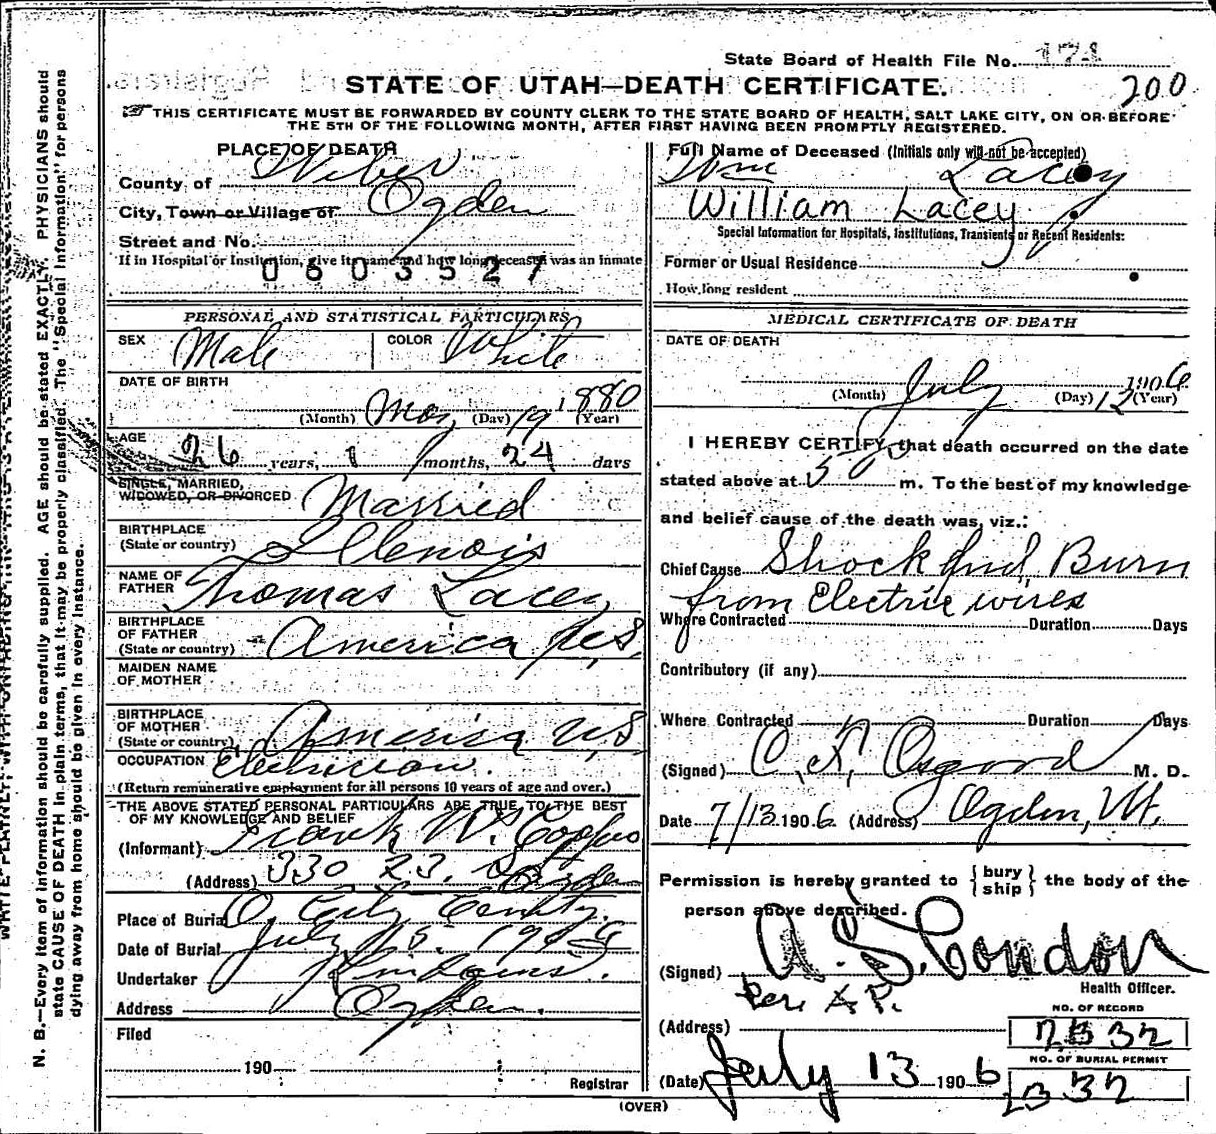 State Board of Health File No. 171
200
STATE OF UTAH—DEATH CERTIFICATE.
THIS CERTIFICATE MUST BE FORWARDED BY COUNTY CLERK TO THE STATE BOARD OF HEALTH, SALT LAKE CITY, ON OR BEFORE
THE 5TH OF THE FOLLOWING MONTH, AFTER FIRST HAVING BEEN PROMPTLY REGISTERED.
PLACE OF DEATH
County of Weber
City, Town or Village of Ogden
Street and No.
If in Hospital or Institution, give its name and how long deceased was an inmate
0603527
PERSONAL AND STATISTICAL PARTICULARS
SEX Male COLOR White
DATE OF BIRTH
(Month) May (Day) 19 1880 (Year)
AGE
26 years, 1 months, 24 days
SINGLE, MARRIED,
WIDOWED, OR DIVORCED Married
BIRTHPLACE
(State or country) Illenois
NAME OF
FATHER Thomas Lacey
BIRTHPLACE
OF FATHER
(State or country) America U.S.
MAIDEN NAME
OF MOTHER
BIRTHPLACE
OF MOTHER
(State or country) America U.S.
OCCUPATION Electrician.
(Return remunerative employment for all persons 10 years of age and over.)
THE ABOVE STATED PERSONAL PARTICULARS ARE TRUE TO THE BEST
OF MY KNOWLEDGE AND BELIEF
(Informant) Frank W.
(Address) 330 23. St Ogden
Place of Burial O. City
Date of Burial July 15. 1906
Undertaker
Address Ogden.
Filed
190
Registrar
Full Name of Deceased (Initials only will not be accepted)
Wm Lacey
William Lacey
Special Information for Hospitals, Institutions, Transients or Recent Residents:
Former or Usual Residence
How long resident
MEDICAL CERTIFICATE OF DEATH
DATE OF DEATH
(Month) July (Day) 12 1906 (Year)
I HEREBY CERTIFY, that death occurred on the date
stated above at 5 P. m. To the best of my knowledge
and belief cause of the death was, viz.:
Chief Cause Shock and Burn
from Electric wires
Where Contracted Duration Days
Contributory (if any)
Where Contracted Duration Days
(Signed) C. A. Osgood M. D.
Date 7/13 1906 (Address) Ogden, Ut.
Permission is hereby granted to { bury ship } the body of the
person above described.
(Signed) A. S. Condon
Health Officer.
per
(Address)
NO. OF RECORD
NO. OF BURIAL PERMIT
(Date) July 13 1906
(OVER)
N. B.—Every item of information should be carefully supplied. AGE should be stated EXACTLY. PHYSICIANS should
state CAUSE OF DEATH in plain terms, that it may be properly classified. The "Special Information" for persons
dying away from home should be given in every instance.